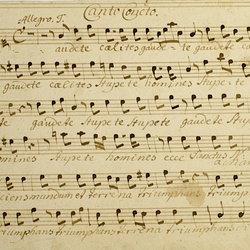 Canto Conc.to
Allegro. T.
audete cælites gaude - te gaudete
gaudete cælites Stupete homines Stupete
te gaudete Stupete Stupete gaudete Stu
mines Stupete homines ecce Sanctus
ciens mundum et terrena triumphans tri
triumphans triumphans terrena triumphans